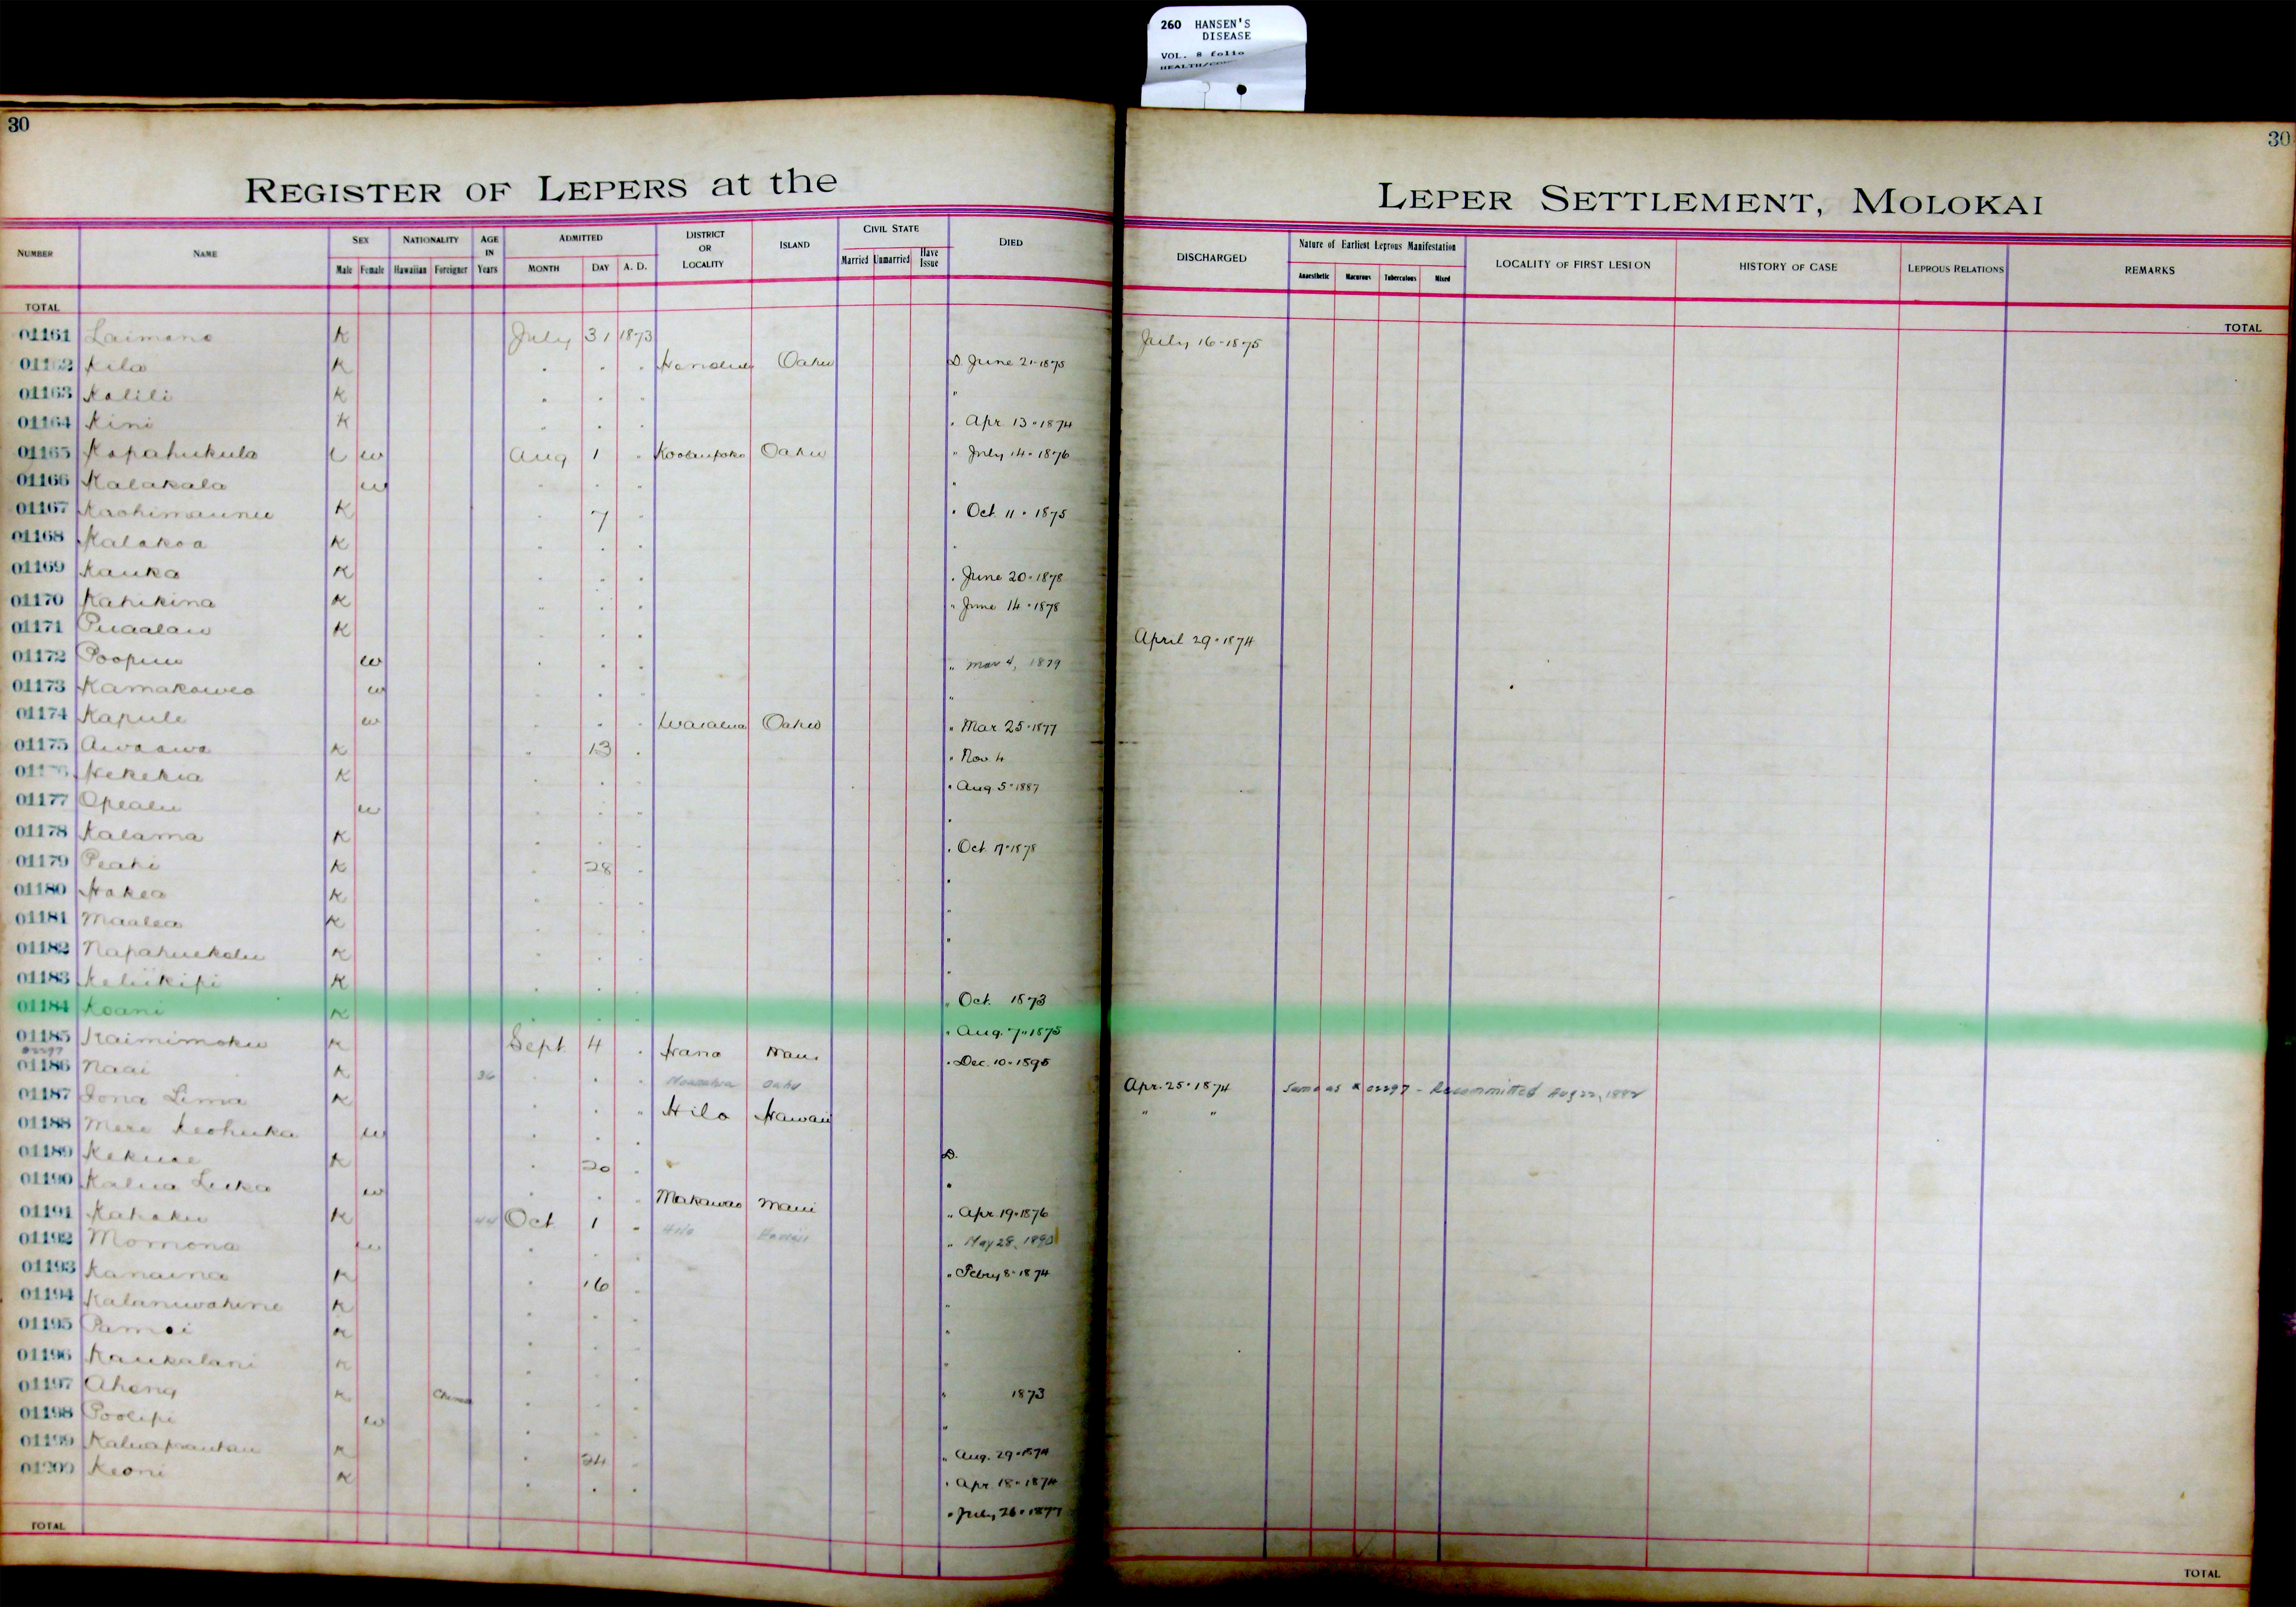 260 HANSEN'S
DISEASE
VOL. 8 folio
30
30
REGISTER OF LEPERS at the
LEPER SETTLEMENT, MOLOKAI
NUMBER NAME SEX Male Female NATIONALITY Hawaiian Foreigner AGE IN Years ADMITTED MONTH DAY A. D. DISTRICT OR LOCALITY ISLAND CIVIL STATE Married Unmarried Have Issue DIED
DISCHARGED Nature of Earliest Leprous Manifestation Anaesthetic Macurous Tuberculous Mixed LOCALITY OF FIRST LESION HISTORY OF CASE LEPROUS RELATIONS REMARKS
TOTAL
TOTAL
01161 Laimana K July 31 1873 July 16-1875
Kila K . . . Honolulu Oahu D. June 21-1875
01163 Kalili K . . . "
01164 Kini K . . . . Apr. 13-1874
01165 Kapahukula w Aug 1 . Koolaupoko Oahu " July 14-1876
01166 Kalakala w . . . "
01167 K . 7 . . Oct. 11-1875
01168 Kalakoa K . . . .
01169 Kauka K . . . . June 20-1878
01170 Kahikina K . . . " June 14-1878
01171 Puaalau K . . . April 29-1874
01172 w . . . " Mar 4, 1879
01173 Kamakawea w . . . "
01174 Kapule w . . . Waialua Oahu " Mar. 25-1877
01175 Awaawa K . 13 . . Nov. 4
Hekekia K . . . . Aug 5-1887
01177 Opealu w . . . .
01178 Kalama K . . . . Oct. 17-1878
01179 Peahi K . 28 . .
01180 Hakea K . . . "
01181 Maalea K . . . "
01182 Napahuekolu K . . . "
01183 Keliikipi K . . . " Oct. 1873
01184 Koani K . . . . Aug. 7-1875
01185 Kaimimoku K Sept. 4 . Hana Maui . Dec. 10-1895
01186 Naai K 36 . . . Oahu Apr. 25-1874 Same as # 02297 - Recommitted Aug 22, 1882
01187 Iona Lima K . . " Hilo Hawaii " "
01188 Mere Keohuka w . . . D.
01189 Kekuae K . 20 . .
01190 Kalua Luka w . . . Makawao Maui " Apr. 19-1876
01191 Kahaku K 44 Oct 1 " Hilo Hawaii " May 28, 1890
01192 Momona w . . . " Febry 8-1874
01193 Kanaina K . 16 . "
01194 Kalaniwahine K . . . "
01195 K . . . "
01196 Kaukalani K . . . " 1873
01197 Ahong K . . . "
01198 Poolipi w . . . " Aug. 29-1874
01199 K . 24 . . Apr. 18-1874
01200 Keoni K . . . . July 26-1877
TOTAL
TOTAL